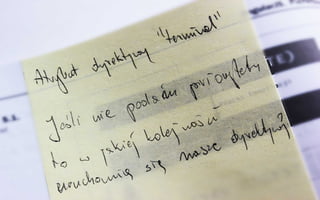 Atrybut dyrektywy "terminal"
Jeśli nie podam priorytetu
to w jakiej kolejności
uruchomią się nasze dyrektywy